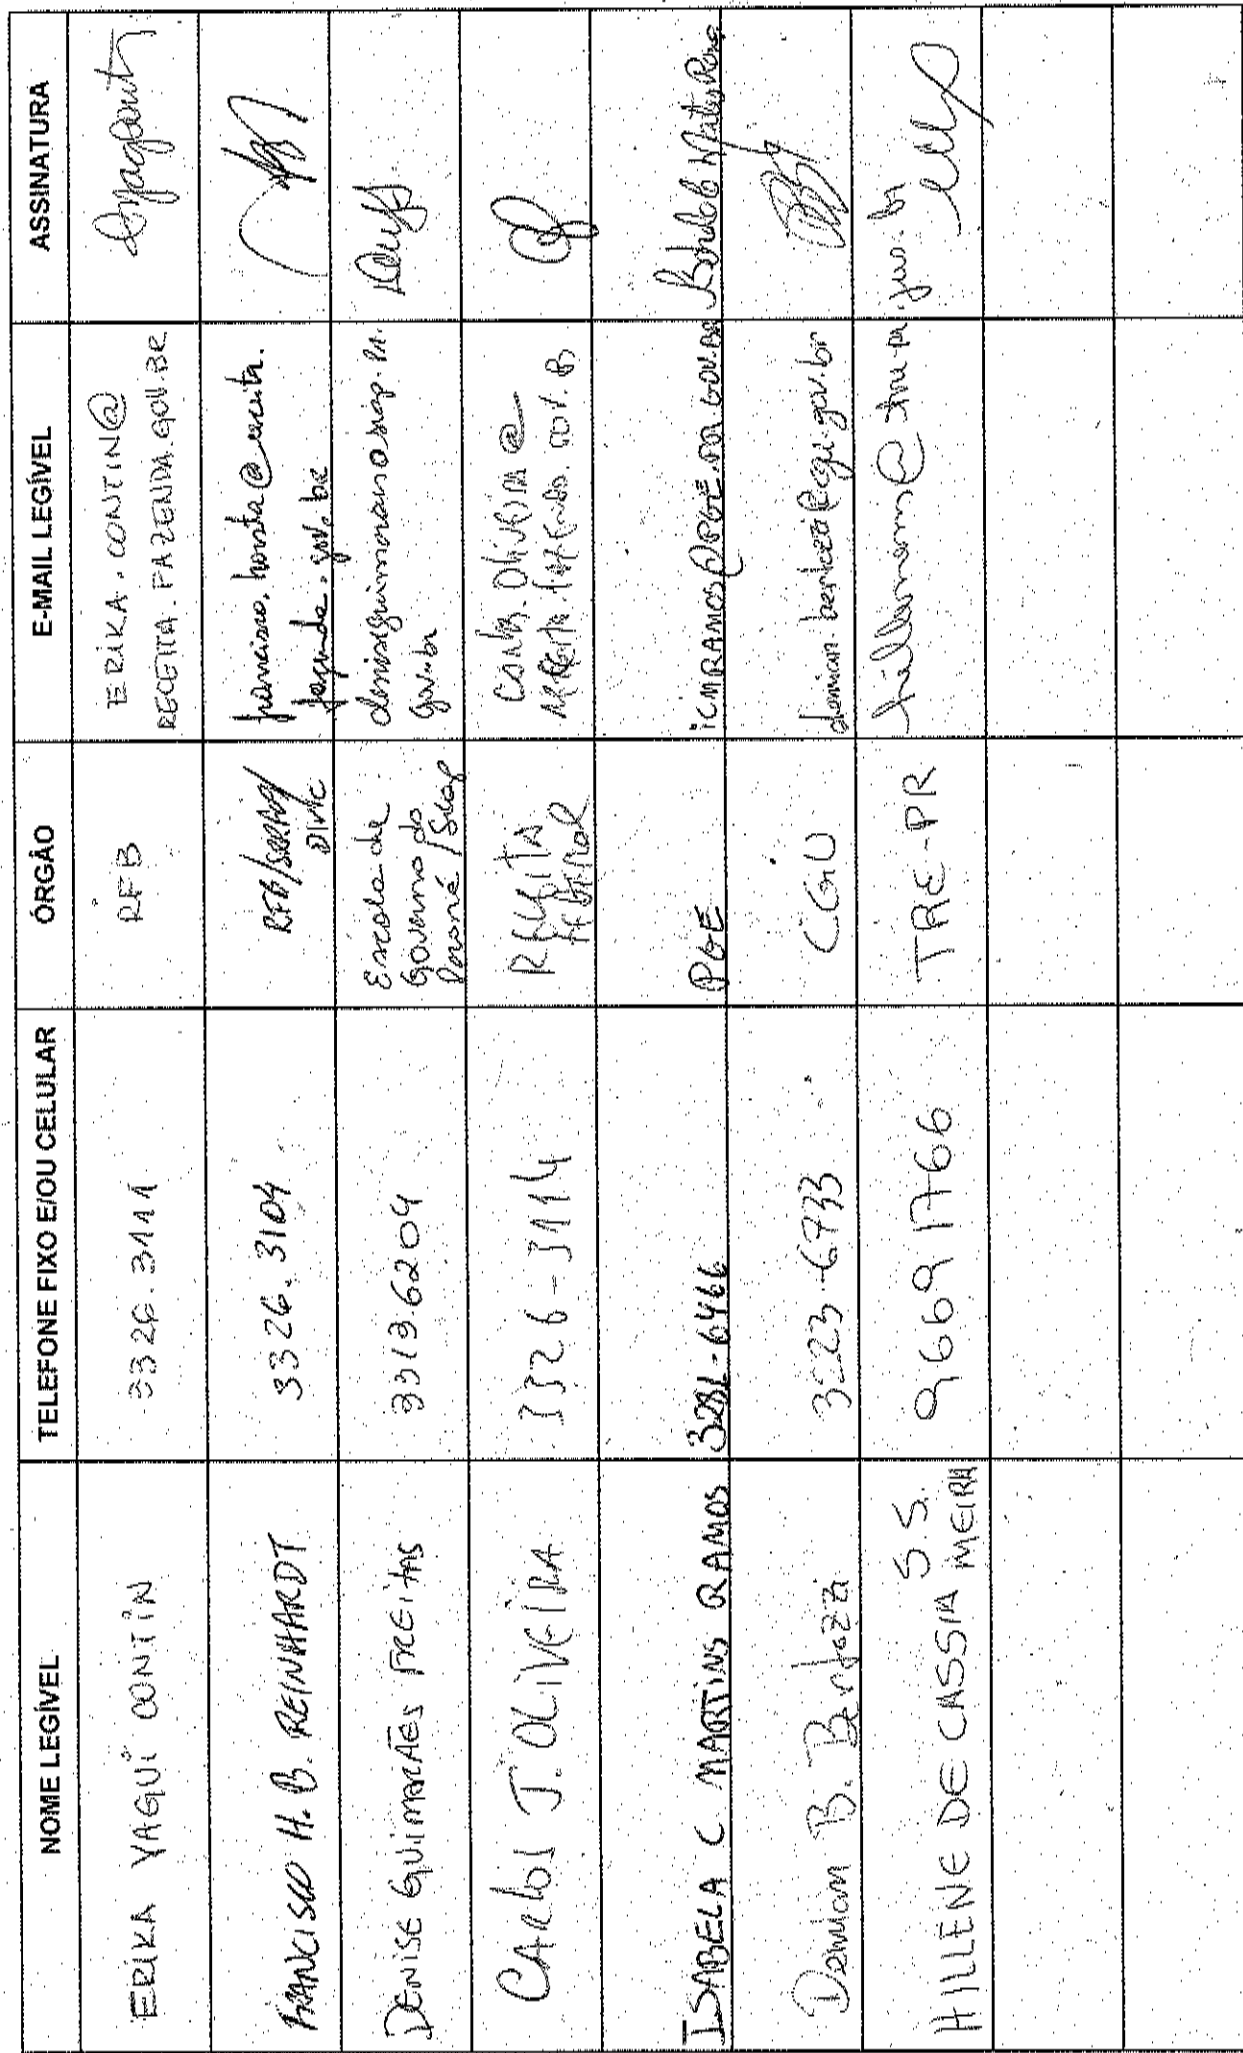 NOME LEGÍVEL TELEFONE FIXO E/OU CELULAR ÓRGÃO E-MAIL LEGÍVEL ASSINATURA
ERIKA YAGUI CONTIN 3326.3111 RFB ERIKA.CONTIN@
RECEITA.FAZENDA.GOV.BR
FRANCISCO H. B. REINHARDT 3326.3104 RFB/ francisco.
fazenda.gov.br
DENISE GUIMARÃES FREITAS 3313.6204 Escola de
Governo do
Paraná/Seap
gov.br
CARLOS J. OLIVEIRA 3326-3114 RECEITA
FEDERAL
CARLOS.OLIVEIRA@
ISABELA C MARTINS RAMOS 3281-6466 PGE iCMRAMOS@PGE.PR.GOV.BR
Demian B. Bertozzi 3223-6733 CGU demian.bertozzi@cgu.gov.br
HILLENE DE CASSIA S.S. 96691766 TRE-PR @tre-pr.jus.br
MEIRA